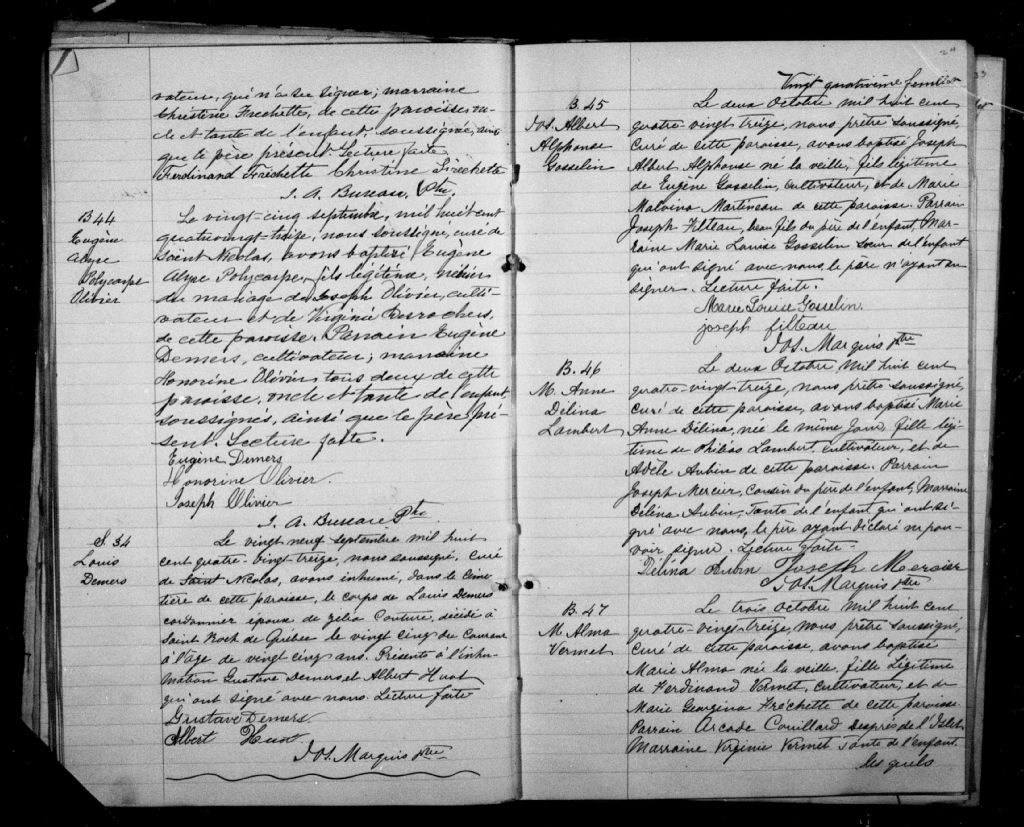 vateur, qui n'a su signer; marraine
Christine Frechette, de cette paroisse, on-
cle et tante de l'enfant, soussignée, ainsi
que le père présent. Lecture faite
Ferdinand Fréchette Christine Frechette
J. A. Bureau, Ptre
B 44
Eugène
Alyre
Polycarpe
Olivier
Le vingt-cinq septembre, mil huit cent
quatrevingt-treize, nous soussigné, curé de
Saint Nicolas, avons baptisé Eugène
Alyre Polycarpe, fils légitime,
du mariage de Joseph Olivier, culti-
vateur et de Virginie Desrochers,
de cette paroisse. Parrain Eugène
Demers, cultivateur; marraine
Honorine Olivier tous deux de cette
paroisse, oncle et tante de l'enfant
soussignés, ainsi que le père pré-
sent. Lecture faite.
Eugène Demers
Honorine Olivier.
Joseph Olivier
J. A. Bureau Ptre
S. 34
Louis
Demers
Le vingt neuf septembre mil huit
cent quatre-vingt treize, nous soussigné, curé
de Saint Nicolas, avons inhumé, dans le cime-
tière de cette paroisse, le corps de Louis Demers
cordonnier époux de Zélia Couture, décédé à
Saint Roch de Québec le vingt cinq du courant
à l'âge de vingt cinq ans. Présents à l'inhu-
mation Gustave Demers et Albert Huot
qui ont signé avec nous. Lecture faite
Gustave Demers
Albert Huot
Jos. Marquis ptre
Vingt quatrième feuillet
B. 45
Jos. Albert
Alphonse
Gosselin
Le deux Octobre mil huit cent
quatre-vingt treize, nous prêtre soussigné,
curé de cette paroisse, avons baptisé Joseph
Albert Alphonse né la veille, fils légitime
de Eugène Gosselin, cultivateur, et de Marie
Malvina Martineau de cette paroisse. Parrain
Joseph Filteau, beau fils du père de l'enfant, Mar-
raine Marie Louise Gosselin Sœur de l'enfant
qui ont signé avec nous, le père n'ayant su
signer. Lecture faite.
Marie Louise Gosselin.
joseph filteau
Jos. Marquis ptre
B. 46
M. Anne
Délina
Lambert
Le deux Octobre, mil huit cent
quatre-vingt treize, nous prêtre soussigné,
curé de cette paroisse, avons baptisé Marie
Anne Délina, née le même jour, fille légi-
time de Philéas Lambert, cultivateur, et de
Adèle Aubin de cette paroisse. Parrain
Joseph Mercier, Cousin du père de l'enfant, Marraine
Délina Aubin, Tante de l'enfant qui ont si-
gné avec nous, le père ayant déclaré ne pou-
voir signer. Lecture faite.
Délina Aubin Joseph Mercier
Jos. Marquis ptre
B. 47
M. Alma
Vermet
Le trois Octobre mil huit cent
quatre-vingt treize, nous prêtre soussigné,
curé de cette paroisse, avons baptisé
Marie Alma né la veille, fille Légitime
de Ferdinand Vermet, cultivateur, et de
Marie Georgina Fréchette de cette paroisse
Parrain Arcade Couillard Després de l'Islet
Marraine Virginie Vermet Tante de l'enfant.
les quels